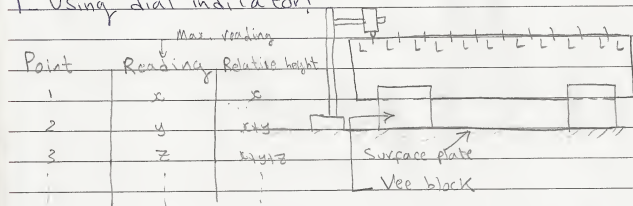 1- Using dial indicator:
Max. reading
Point Reading Relative height
1 x x
2 y x+y
3 z x+y+z
L L L L L L L L L L
Surface plate
Vee block